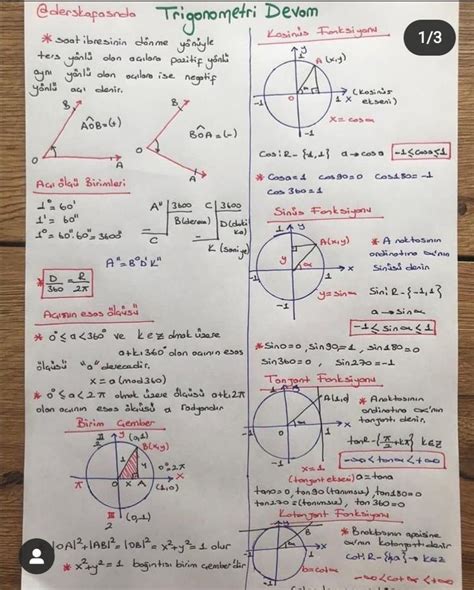 @derskafasnda
Trigonometri Devam
1/3
* saat ibresinin dönme yönüyle
ters yönlü olan açılara pozitif yönlü
aynı yönlü olan açılara ise negatif
yönlü açı denir.
B
AOB=(+)
O
A
B
BOA=(-)
O
A
Açı ölçü Birimleri
1°=60'
1'=60"
1°=60'.60"=3600"
A" | 3600
B(derece)
C
C | 3600
D(dakika)
K (saniye)
A"=B°D'K"
* D/360 = R/2π
Açının esas ölçüsü
* 0°≤a<360° ve k∈Z olmak üzere
a+k.360° olan açının esas
ölçüsü "a" derecedir.
x=a(mod360)
* 0≤a<2π olmak üzere ölçüsü a+k.2π
olan açının esas ölçüsü a radyandır
Birim Çember
π/2
y
(0,1)
B(x,y)
1
y
π
O
x
A
0°=2π
x
(1,0)
(0,-1)
|OA|²+|AB|²=|OB|²=x²+y²=1 olur
* x²+y²=1 bağıntısı birim çember'dir
Kosinüs Fonksiyonu
y
1
A(x,y)
-1
O
1
x
(kosinüs
ekseni)
-1
x=cosα
Cos:R-{1,1} a→cosa -1≤cosa≤1
* Cosa=1 cos90=0 Cos180=-1
cos360=1
Sinüs Fonksiyonu
y
A(x,y)
y
α
-1
x
-1
y=sinα
* A noktasının
ordinatına α'nın
Sinüsü denir
Sin:R-{-1,1}
a→Sina
-1≤Sinα≤1
* Sin0=0, sin90=1, Sin180=0
Sin360=0, Sin270=-1
Tanjant Fonksiyonu
-1
O
x
x=1
(tanjant ekseni)
* A noktasının
ordinatına α'nın
tanjantı denir
tanR-{π/2+kπ} k∈Z
-∞<tanα<+∞
a=tana
tan0=0, tan90(tanımsız), tan180=0
tan270=(tanımsız), tan360=0
Kotanjant Fonksiyonu
B
-1
x
b=cotα
* B noktasının apsisine
α'nın kotanjantı denir
k∈Z
-∞<cotα<+∞